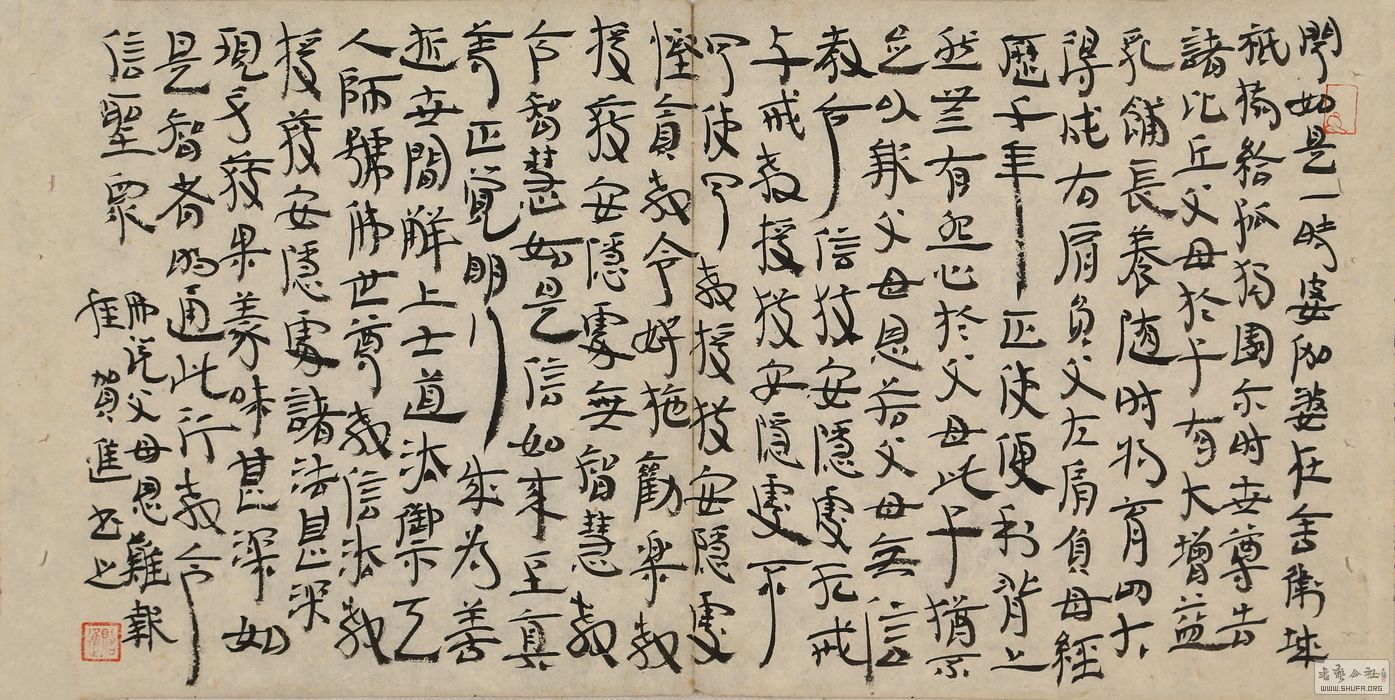 聞如是一時婆伽婆在舍衛城
祇樹給孤獨園尔时世尊告
諸比丘父母於子有大增益
乳餔長養随时将育四大
得成右肩負父左肩負母經
歷千年正使便利背上
然無有怨心於父母此子猶不
足以報父母恩若父母無信
教令信獲安隱處无戒
与戒教授獲安隱處不
聞使聞教授獲安隱處
慳貪教令好施勸樂教
授獲安隱處無智慧教
令智慧如是信如来至真
等正覺明行成為善
逝世間解上士道法御天
人師號佛世尊教信法教
授獲安隱處諸法甚深
現身獲果義味甚深如
是智者明通此行教令
信聖眾
佛说父母恩難報
賀進書之
書藝公社
WWW.SHUFA.ORG